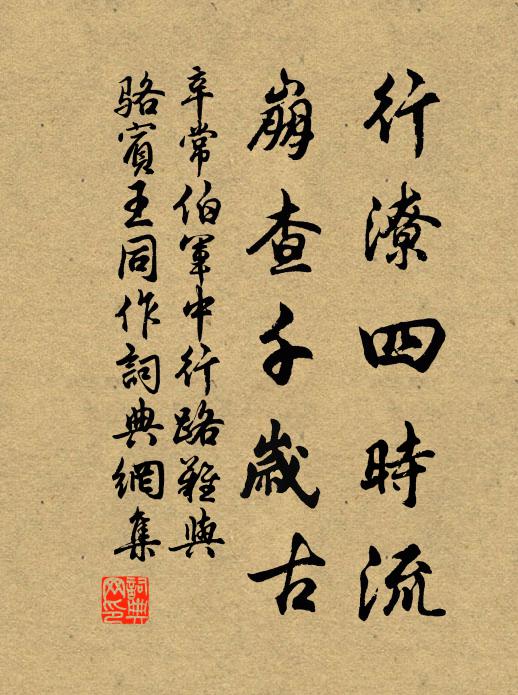 行潦四時流
崩查千歲古
辛常伯軍中行路難與
駱賓王同作詞典網集
詞典網印